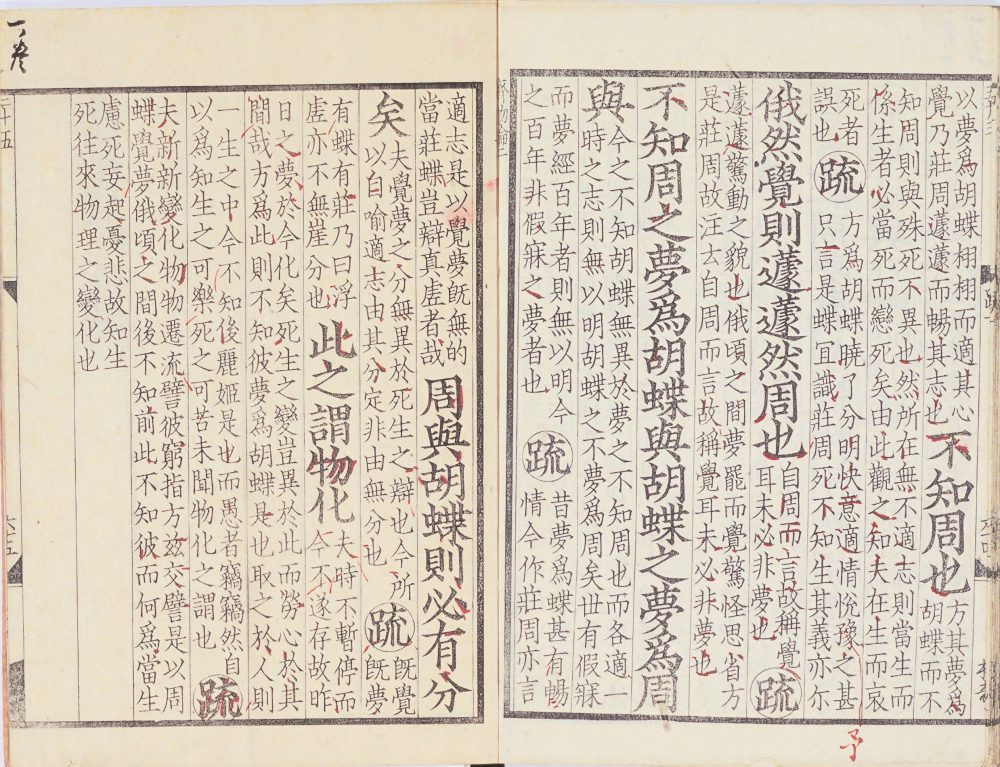 以夢爲胡蝶栩栩而適其心
覺乃莊周蘧蘧而暢其志也
不知周也
方其夢爲
胡蝶而不
知周則與殊死不異也然所在無不適志則當生而
係生者必當死而戀死矣由此觀之知夫在生而哀
死者
誤也
疏
方爲胡蝶曉了分明快意適情悅豫之甚
只言是蝶宜識莊周死不知生其義亦尓
俄然覺則蘧蘧然周也
自周而言故稱覺
耳未必非夢也
疏
蘧蘧驚動之貌也俄頃之間夢罷而覺驚怪思省方
是莊周故注云自周而言故稱覺耳未必非夢也
不知周之夢爲胡蝶與胡蝶之夢爲周
與
今之不知胡蝶無異於夢之不知周也而各適一
時之志則無以明胡蝶之不夢爲周矣世有假寐
而夢經百年者則無以明今
之百年非假寐之夢者也
疏
昔夢爲蝶甚有暢
情今作莊周亦言
適志是以覺夢既無的
當莊蝶豈辯真虛者哉
周與胡蝶則必有分
矣
夫覺夢之分無異於死生之辯也今所
以自喻適志由其分定非由無分也
疏
既覺
既夢
有蝶有莊乃曰浮
虛亦不無崖分也
此之謂物化
夫時不暫停而
今不遂存故昨
日之夢於今化矣死生之變豈異於此而勞心於其
間哉方爲此則不知彼夢爲胡蝶是也取之於人則
一生之中今不知後麗姬是也而愚者竊竊然自
以爲知生之可樂死之可苦未聞物化之謂也
疏
夫新新變化物物遷流譬彼窮指方玆交譬是以周
蝶覺夢俄頃之間後不知前此不知彼而何爲當生
慮死妄起憂悲故知生
死往來物理之變化也
二十五
一卷
六十五